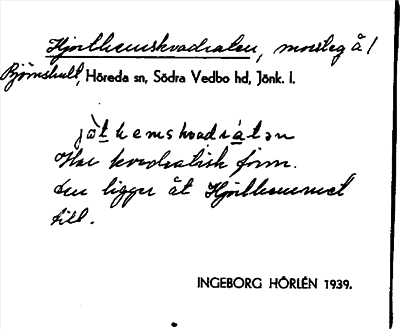 Hjorthemskvadraten, mossteg å /
Björnhult, Höreda sn, Södra Vedbo hd, Jönk. l.
Har kvadratisk form.
den ligger åt Hjorthemmet
till.
INGEBORG HÖRLÉN 1939.